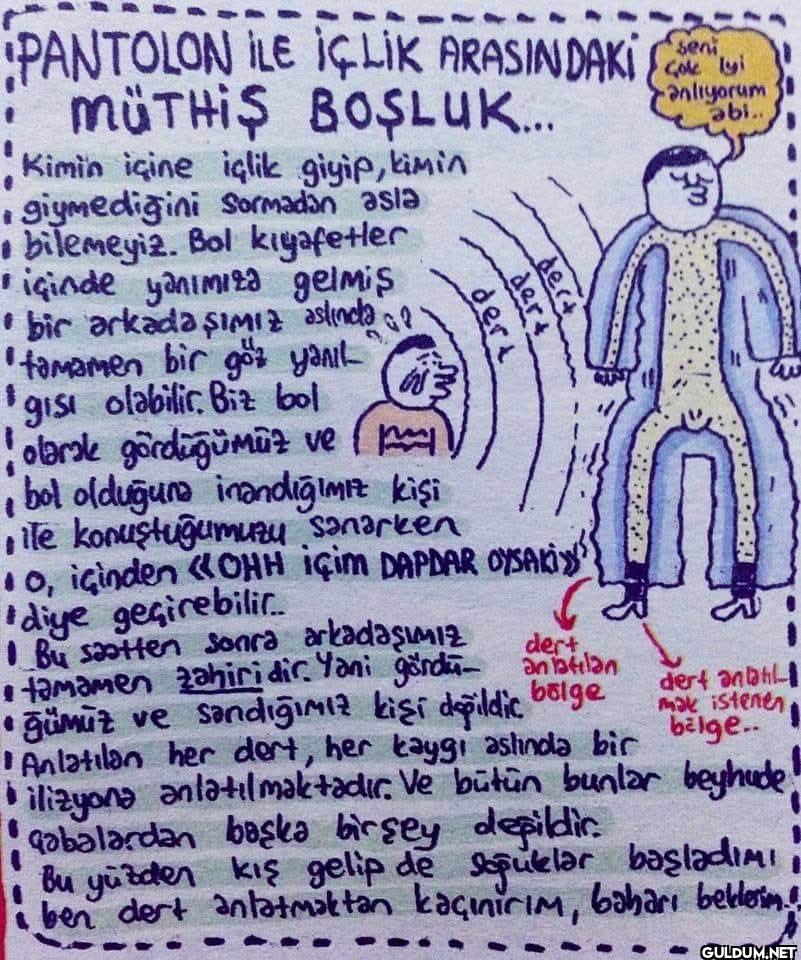 PANTOLON İLE İÇLİK ARASINDAKİ
MÜTHİŞ BOŞLUK...
seni
çok iyi
anlıyorum
abi..
Kimin içine içlik giyip, kimin
giymediğini sormadan asla
bilemeyiz. Bol kıyafetler
içinde yanımıza gelmiş
bir arkadaşımız aslında
tamamen bir göz yanıl-
gısı olabilir. Biz bol
olarak gördüğümüz ve
bol olduğuna inandığımız kişi
ile konuştuğumuzu sanarken
o, içinden «OHH İÇİM DAPDAR OYSAKİ»
diye geçirebilir..
Bu saatten sonra arkadaşımız
tamamen zahiridir. Yani gördü-
ğümüz ve sandığımız kişi değildir.
Anlatılan her dert, her kaygı aslında bir
ilizyona anlatılmaktadır. Ve bütün bunlar beyhude
çabalardan başka birşey değildir.
Bu yüzden kış gelip de soğuklar başladımı
ben dert anlatmaktan kaçınırım, baharı beklerim..
dert
dert
dert
dert
anlatılan
bölge
dert anlatıl-
mak istenen
bölge..
GULDUM.NET